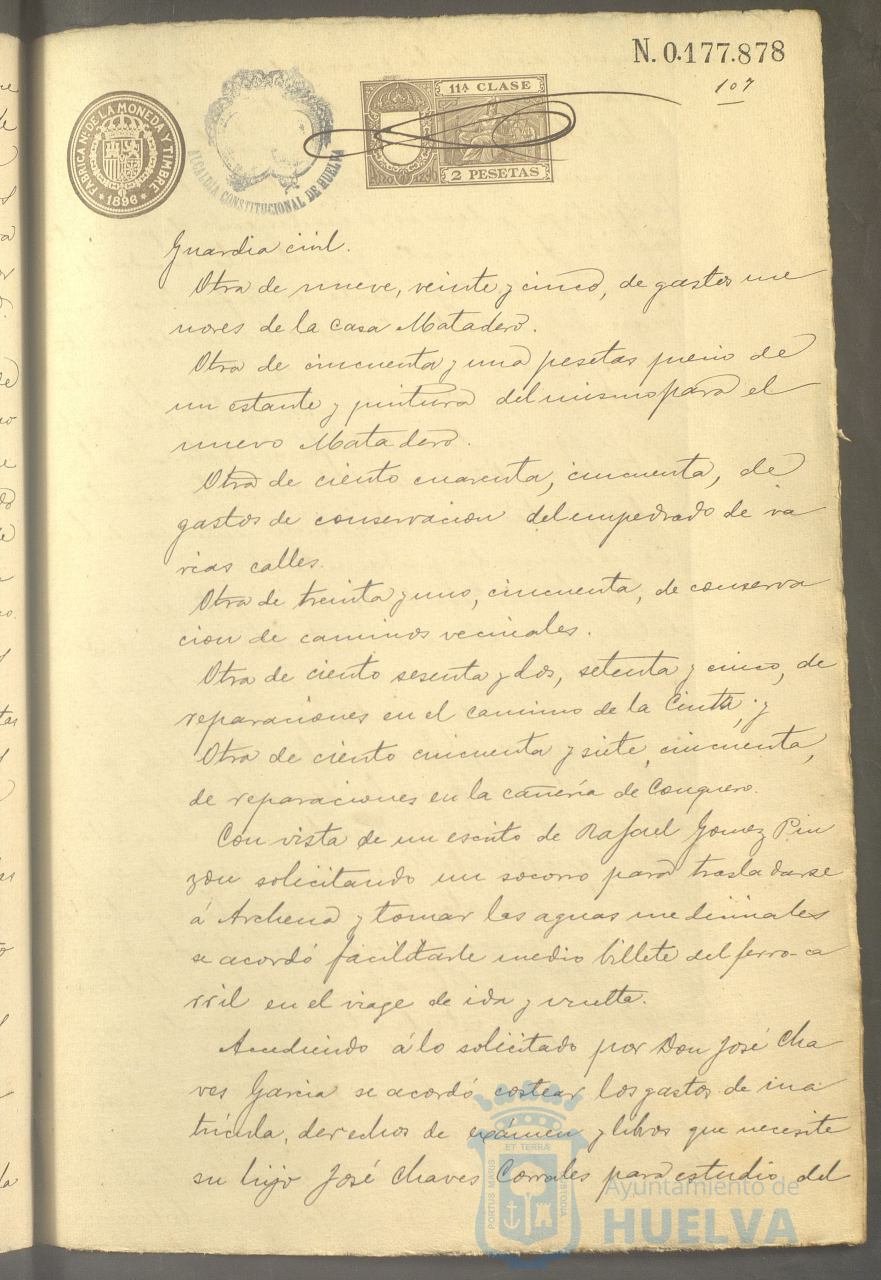 N. 0.177.878
107
11ª CLASE
2 PESETAS
FABRICA Nal DE LA MONEDA Y TIMBRE
1896
ALCALDIA CONSTITUCIONAL DE HUELVA
Guardia civil.
Otra de nueve, veinte y cinco, de gastos me
nores de la casa Matadero.
Otra de cincuenta y una pesetas precio de
un estante y pintura del mismo para el
nuevo Matadero.
Otra de ciento cuarenta, cincuenta, de
gastos de conservacion del empedrado de va
rias calles.
Otra de treinta y uno, cincuenta, de conserva
cion de caminos vecinales.
Otra de ciento sesenta y dos, setenta y cinco, de
reparaciones en el camino de la Cinta; y
Otra de ciento cincuenta y siete, cincuenta,
de reparaciones en la cañeria de Conquero.
Con vista de un escrito de Rafael Gomez Pin
zon solicitando un socorro para trasladarse
á Archena y tomar las aguas medicinales
se acordó facilitarle medio billete del ferro-ca
rril en el viage de ida y vuelta.
Accediendo á lo solicitado por Don José Cha
ves Garcia se acordó costear los gastos de ma
trícula, derechos de exámen y libros que necesite
su hijo José Chaves Corrales para estudio del
PORTUS MARIS ET TERRÆ CUSTODIA
Ayuntamiento de
HUELVA